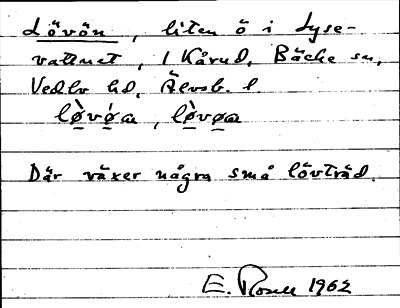 Lövön, liten ö i Lyse-
vattnet, 1 Kårud, Bäcke sn,
Vedbo hd, Älvsb. l.
lø̀vǿa, lø̀vøa
Där växer några små lövträd.
E. Rosell 1962